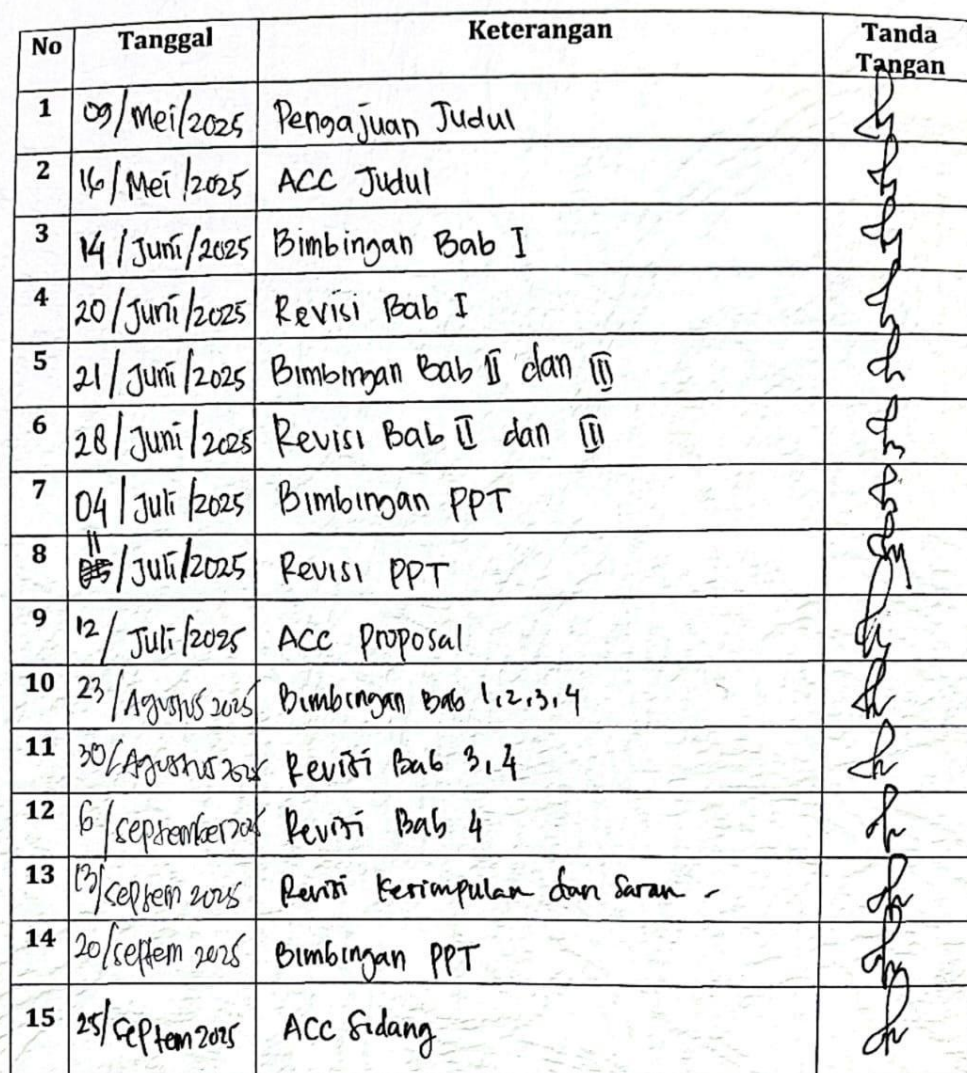 No Tanggal Keterangan Tanda Tangan
1 09/Mei/2025 Pengajuan Judul
2 16/Mei/2025 ACC Judul
3 14/Juni/2025 Bimbingan Bab I
4 20/Juni/2025 Revisi Bab I
5 21/Juni/2025 Bimbingan Bab II dan III
6 28/Juni/2025 Revisi Bab II dan III
7 04/Juli/2025 Bimbingan PPT
8 11/Juli/2025 Revisi PPT
9 12/Juli/2025 ACC Proposal
10 23/Agustus 2025 Bimbingan Bab 1,2,3,4
11 30/Agustus 2025 Revisi Bab 3,4
12 6/September 2025 Revisi Bab 4
13 13/Septem 2025 Revisi Kesimpulan dan Saran -
14 20/Septem 2025 Bimbingan PPT
15 25/Septem 2025 ACC Sidang